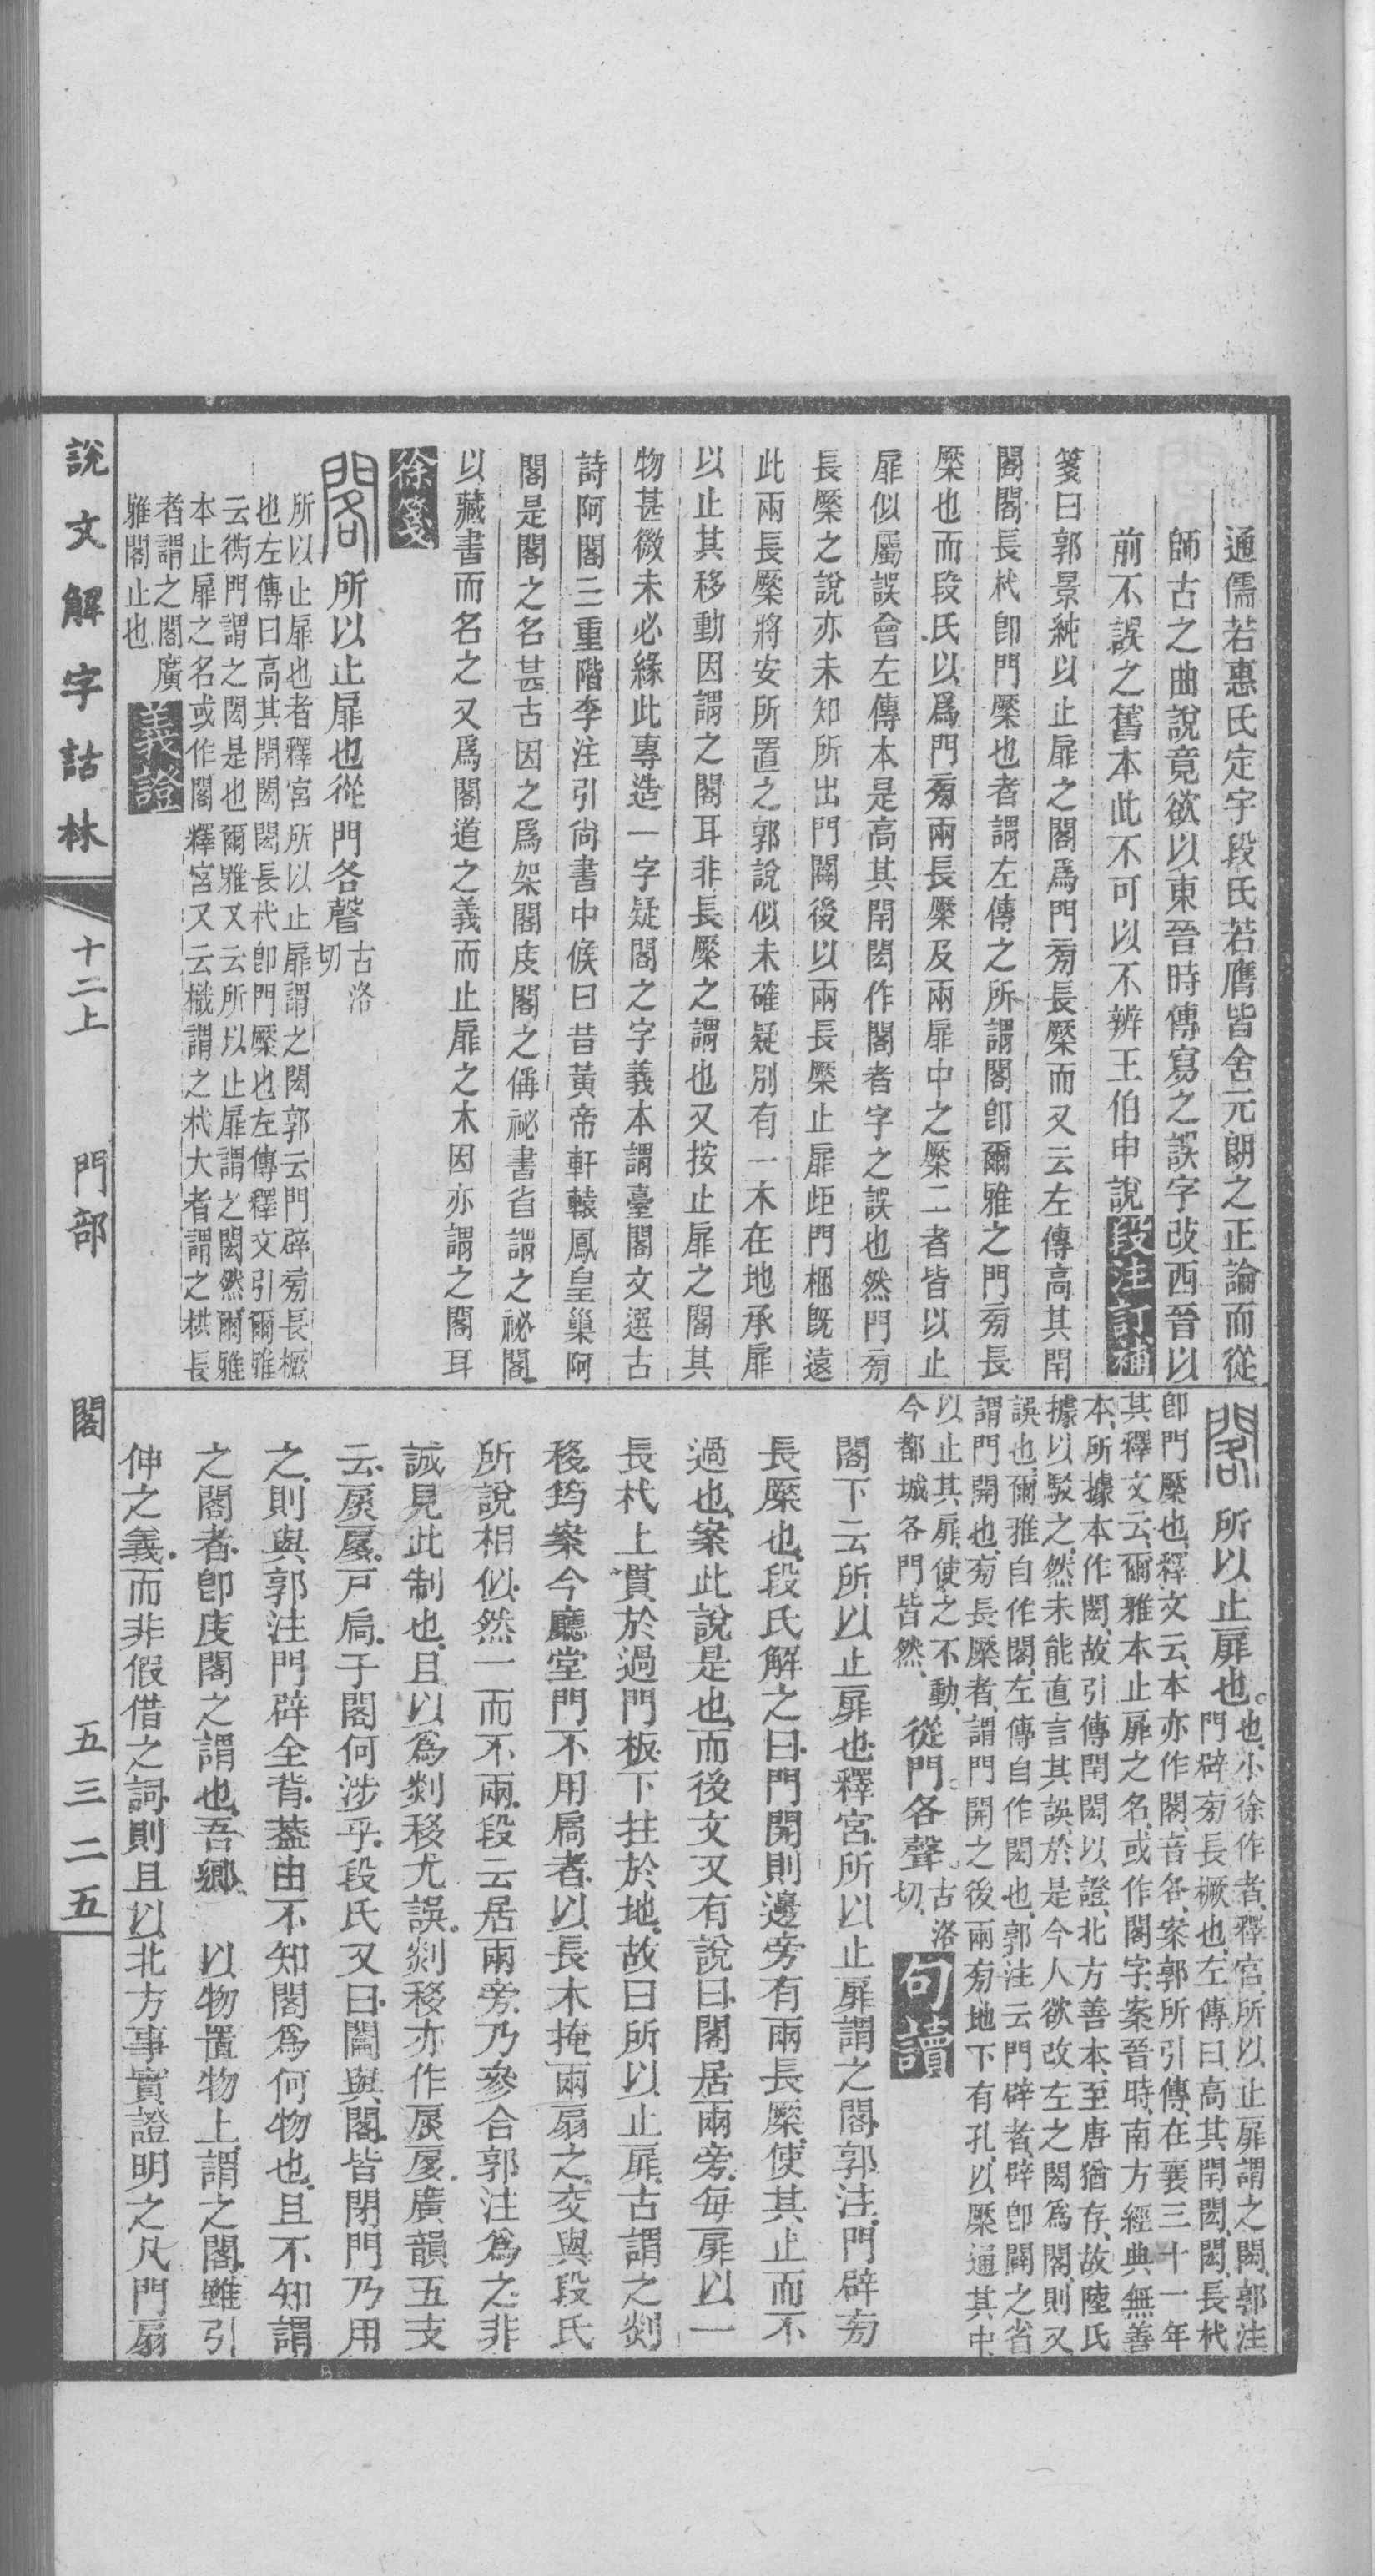 通儒若惠氏定宇段氏若膺皆舍元朗之正論而從
師古之曲說竟欲以東晉時傳寫之誤字改西晉以
前不誤之舊本此不可以不辨王伯申說段注訂補
箋曰郭景純以止扉之閣爲門旁長橜而又云左傳高其閈
閣閣長杙卽門橜也者謂左傳之所謂閣卽爾雅之門旁長
橜也而段氏以爲門旁兩長橜及兩扉中之橜二者皆以止
扉似屬誤會左傳本是高其閈閎作閣者字之誤也然門旁
長橜之說亦未知所出門闢後以兩長橜止扉歫門梱旣遠
此兩長橜將安所置之郭說似未確疑別有一木在地承扉
以止其移動因謂之閣耳非長橜之謂也又按止扉之閣其
物甚微未必緣此專造一字疑閣之字義本謂臺閣文選古
詩阿閣三重階李注引尙書中候曰昔黃帝軒轅鳳皇巢阿
閣是閣之名甚古因之爲架閣庋閣之偁祕書省謂之祕閣
以藏書而名之又爲閣道之義而止扉之木因亦謂之閣耳
徐箋
閣所以止扉也從門各聲古洛
切
所以止扉也者釋宮所以止扉謂之閎郭云門辟旁長橛
也左傳曰高其閈閎閎長杙卽門橜也左傳釋文引爾雅
云衖門謂之閎是也爾雅又云所以止扉謂之閎然爾雅
本止扉之名或作閣釋宮又云樴謂之杙大者謂之栱長
者謂之閣廣
雅閣止也義證
閣所以止扉也。也小徐作者釋宮所以止扉謂之閎郭注
門辟旁長橛也左傳曰高其閈閎閎長杙
卽門橜也釋文云本亦作閣音各案郭所引傳在襄三十一年
其釋文云爾雅本止扉之名或作閣字案晉時南方經典無善
本所據本作閎故引傳閈閎以證北方善本至唐猶存故陸氏
據以駁之然未能直言其誤於是今人欲改左之閎爲閣則又
誤也爾雅自作閣左傳自作閎也郭注云門辟者辟卽闢之省
謂門開也旁長橜者謂門開之後兩旁地下有孔以橜通其中
以止其扉使之不動從門。各聲。古洛
今都城各門皆然切句讀
閣下云所以止扉也釋宮所以止扉謂之閣郭注門辟旁
長橜也段氏解之曰門開則邊旁有兩長橜使其止而不
過也案此說是也而後文又有說曰閣居兩旁每扉以一
長杙上貫於過門板下拄於地故曰所以止扉古謂之剡
移筠案今廳堂門不用扃者以長木掩兩扇之交與段氏
所說相似然一而不兩段云居兩旁乃參合郭注爲之非
誠見此制也且以爲剡移尤誤剡移亦作扊扅廣韻五支
云扊扅戶扃于閣何涉乎段氏又曰闔與閣皆閉門乃用
之則與郭注門辟全背葢由不知閣爲何物也且不知謂
之閣者卽庋閣之謂也吾鄕以物置物上謂之閣雖引
伸之義而非假借之詞則且以北方事實證明之凡門扇
說文解字詁林
十二上
門部
閣
五三二五